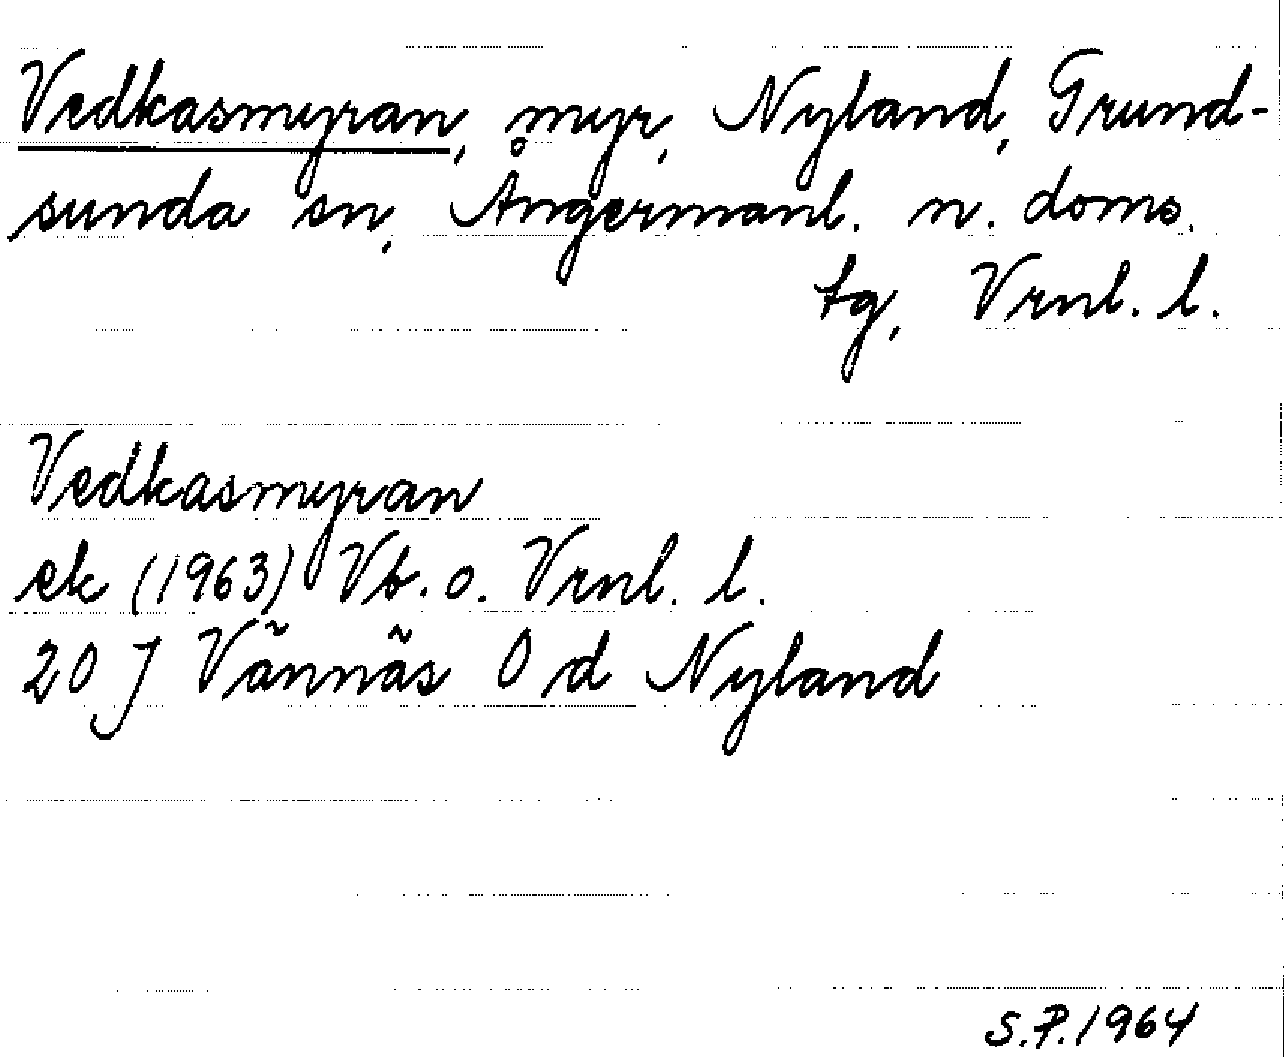 Vedkasmyran, myr, Nyland, Grund-
sunda sn, Ångermanl. n. doms.
tg, Vrnl. l.
Vedkasmyran
ek (1963) Vb. o. Vrnl. l.
20 J Vännäs 0 d Nyland
S.P.1964